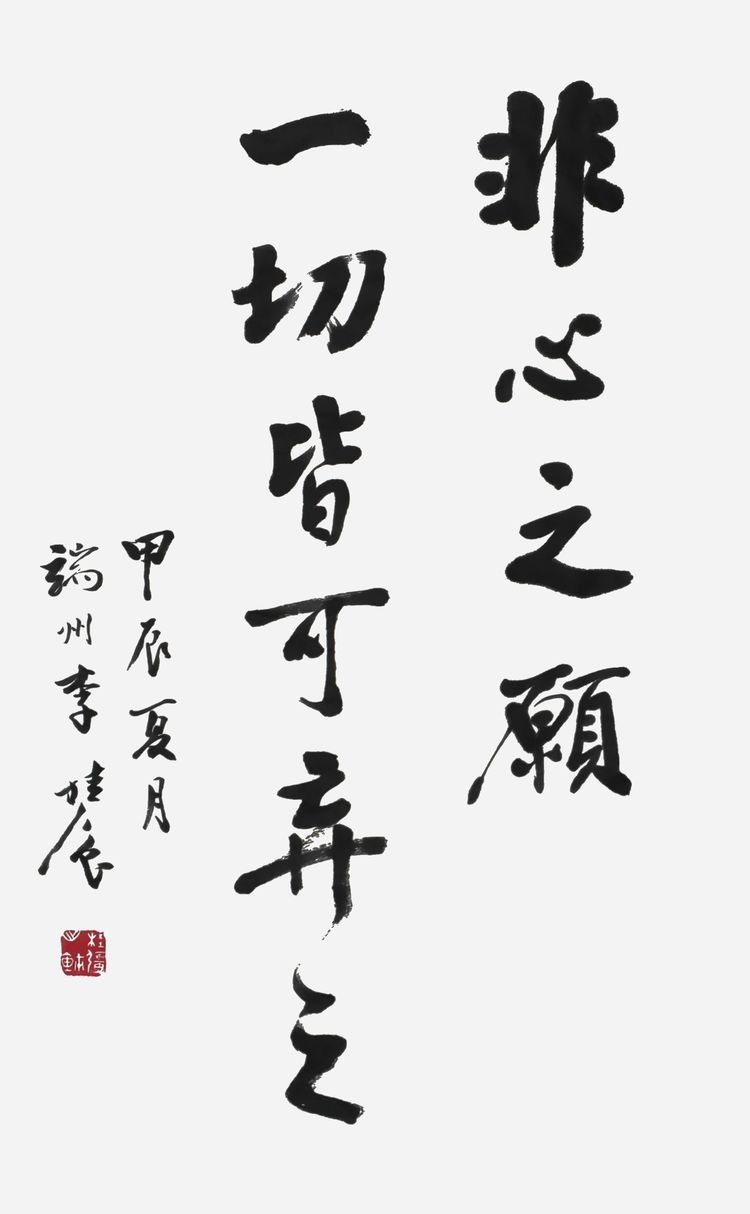 非心之願
一切皆可弃之
甲辰夏月
端州李